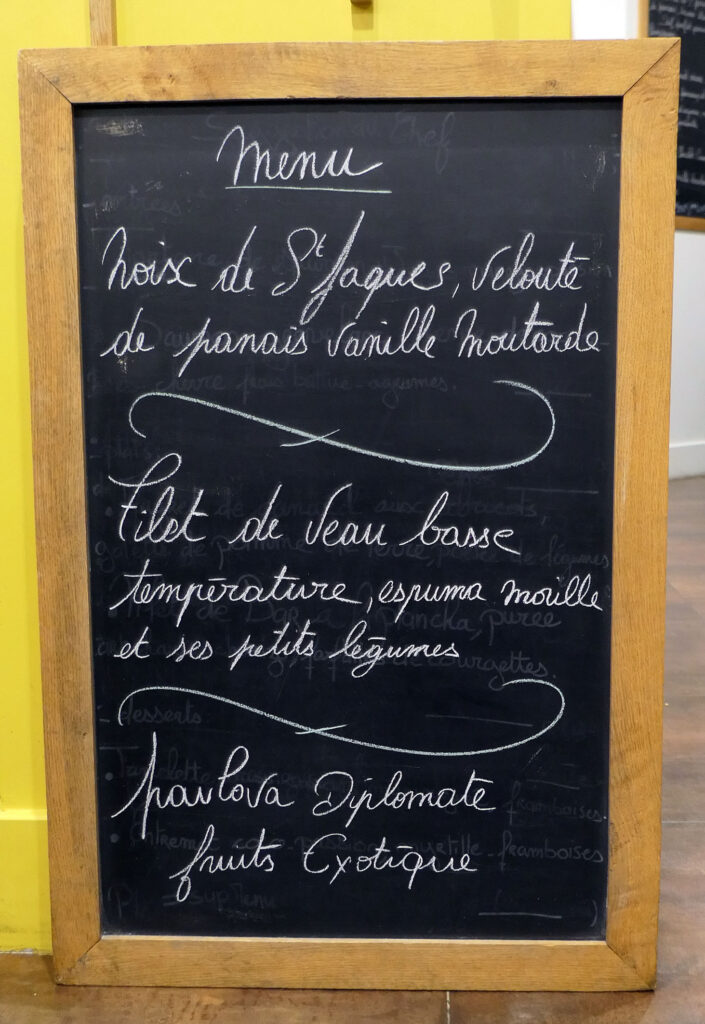 Menu
Noix de St Jaques, velouté
de panais vanille Moutarde
Filet de Veau basse
température, espuma morille
et ses petits légumes
pavlova Diplomate
fruits Exotique